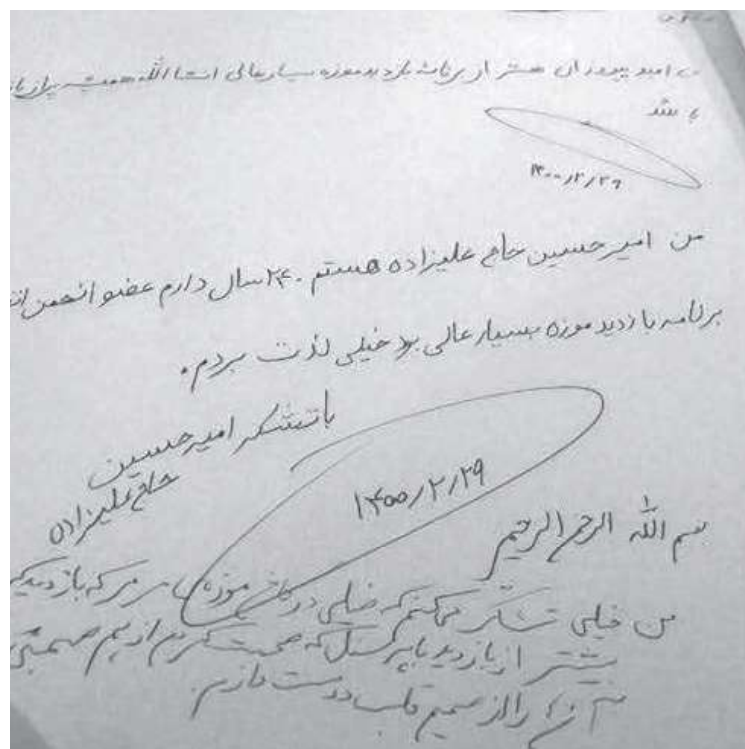 امید پیروزان هستم از برنامه بازدید موزه بسیار عالی انشاالله همیشه
باشد
۱۴۰۰/۲/۲۹
من امیرحسین حاج علیزاده هستم. ۲۴ سال دارم عضو انجمن
برنامه بازدید موزه بسیار عالی بود خیلی لذت بردم.
با تشکر امیرحسین
حاج علیزاده
۱۴۰۰/۲/۲۹
بسم الله الرحمن الرحیم
من خیلی تشکر میکنم که خیلی در موزه که بازدید
بیشتر از بازدید با پرسنل که صحبت کردم از هم صحبتی
را از صمیم قلب دوست دارم